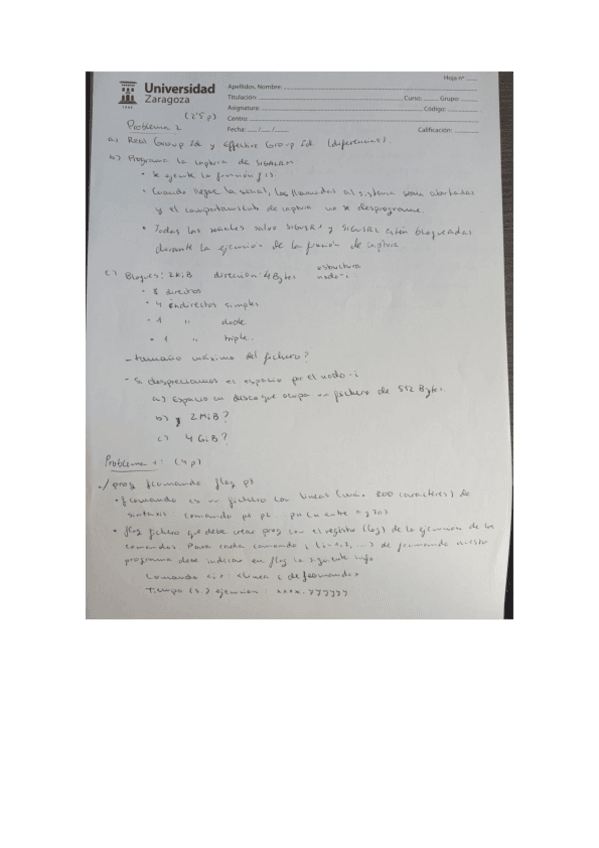 Hoja nº
Universidad
Zaragoza
1542
Apellidos, Nombre:
Titulación: Curso: Grupo:
Asignatura: Código:
Centro:
Fecha: / / Calificación:
Problema 2 (2'5 p)
a) Real Group Id y Effective Group Id (diferencias).
b) Programa la captura de SIGALRM
• Se ejecute la función f().
• Cuando llegue la señal, las llamadas al sistema sean abortadas
y el comportamiento de captura no se desprograme.
• Todas las señales salvo SIGUSR1 y SIGUSR2 estén bloqueadas
durante la ejecución de la función de captura.
c) Bloques: 2KiB dirección: 4 Bytes estructura nodo-i
• 8 directos
• 4 indirectos simples
• 1 " doble
• 1 " triple.
- tamaño máximo del fichero?
- Si despreciamos el espacio por el nodo-i
a) Espacio en disco que ocupa un fichero de 512 Bytes.
b) y 2MiB?
c) 4GiB?
Problema 1: (4 p)
./prog fcomando flog p3
• fcomando es un fichero con líneas (máx 200 caracteres) de
sintaxis: comando p1 p2 ... pn (n entre
• flog fichero que debe crear prog con el registro (log) de la ejecución de los
comandos. Para cada comando i (i=1,2,...) de fcomando nuestro
programa debe indicar en flog la siguiente info
Comando <i>: <línea i de fcomando>
Tiempo (s.) ejecución: xxxx.yyyyyy